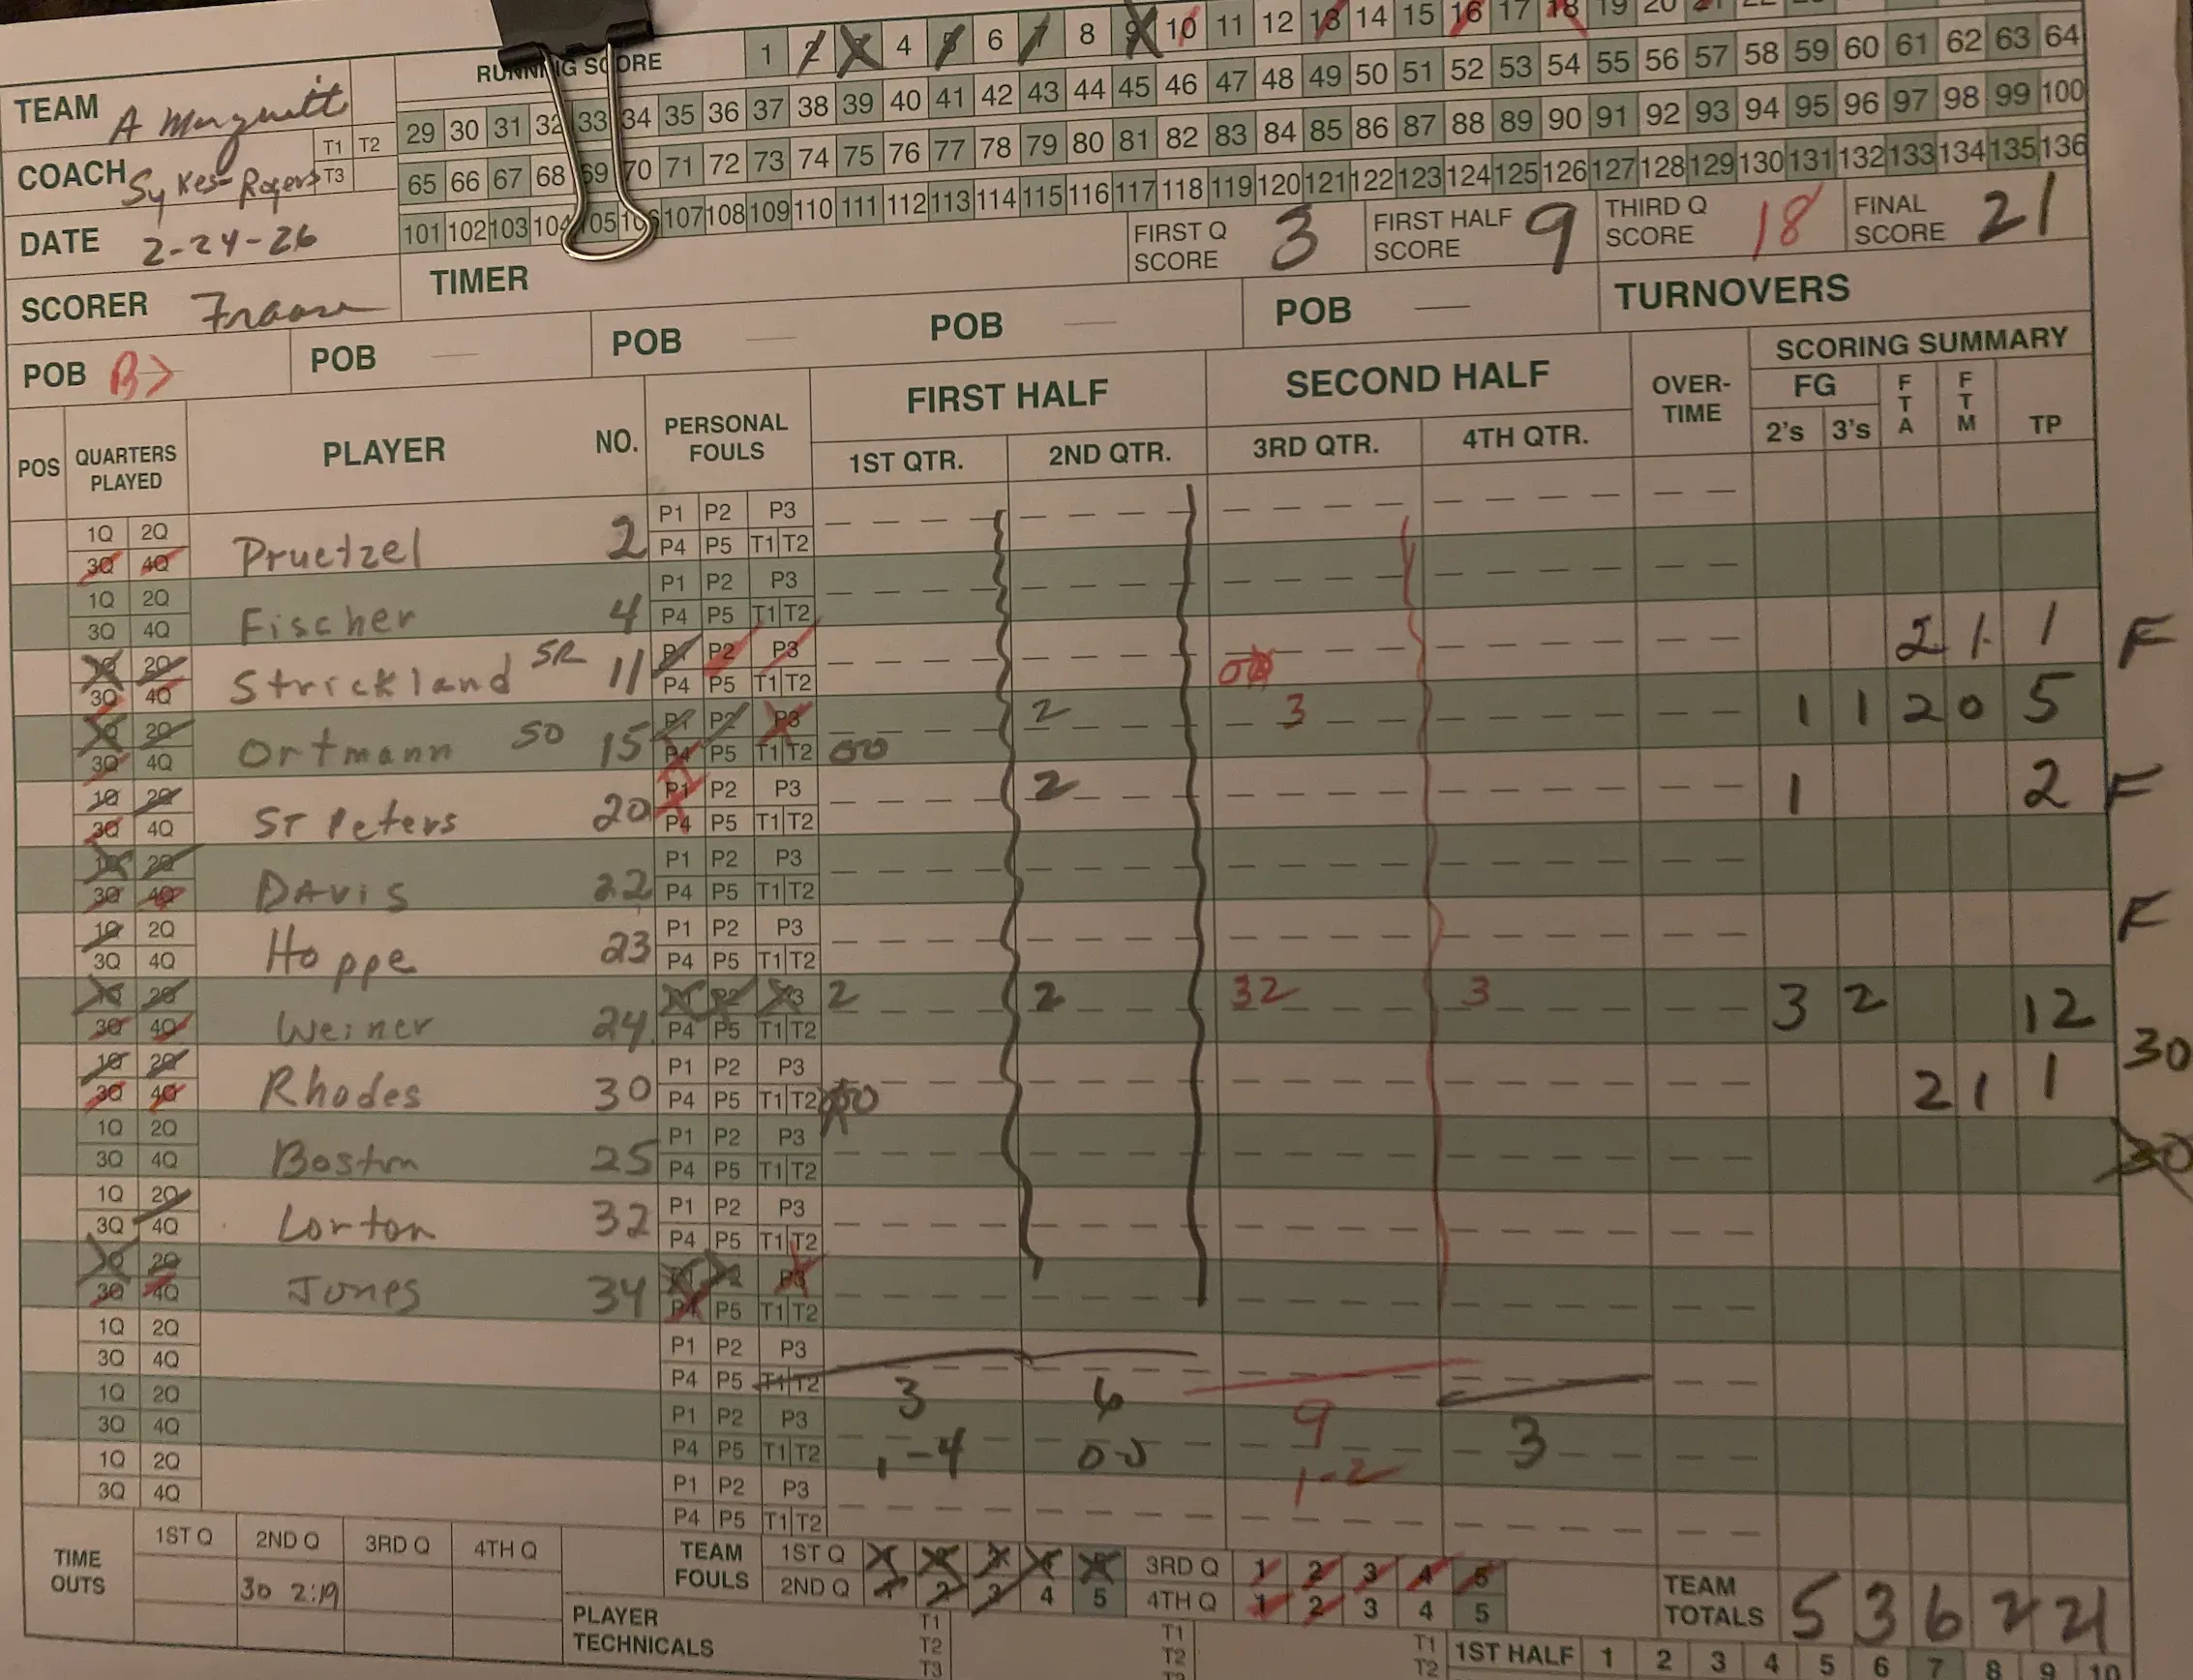 RUNNING SCORE 1 2 3 4 5 6 7 8 9 10 11 12 13 14 15 16 17 18 19 20
TEAM A Marquitt
29 30 31 32 33 34 35 36 37 38 39 40 41 42 43 44 45 46 47 48 49 50 51 52 53 54 55 56 57 58 59 60 61 62 63 64
COACH Sykes-Rogers T1 T2 T3
65 66 67 68 69 70 71 72 73 74 75 76 77 78 79 80 81 82 83 84 85 86 87 88 89 90 91 92 93 94 95 96 97 98 99 100
101 102 103 104 105 106 107 108 109 110 111 112 113 114 115 116 117 118 119 120 121 122 123 124 125 126 127 128 129 130 131 132 133 134 135 136
DATE 2-24-26
TIMER
FIRST Q SCORE 3
FIRST HALF SCORE 9
THIRD Q SCORE 18
FINAL SCORE 21
SCORER
POB B> POB — POB — POB — POB —
TURNOVERS
POS QUARTERS PLAYED PLAYER NO. PERSONAL FOULS FIRST HALF SECOND HALF OVER-TIME SCORING SUMMARY
1ST QTR. 2ND QTR. 3RD QTR. 4TH QTR. FG 2's 3's FTA FTM TP
1Q 2Q 3Q 4Q Pruetzel 2 P1 P2 P3 P4 P5 T1 T2
1Q 2Q 3Q 4Q Fischer 4 P1 P2 P3 P4 P5 T1 T2
1Q 2Q 3Q 4Q Strickland SR 11 P1 P2 P3 P4 P5 T1 T2 2 1 1 F
1Q 2Q 3Q 4Q Ortmann SO 15 P1 P2 P3 P4 P5 T1 T2 00 2 3 1 1 2 0 5
1Q 2Q 3Q 4Q ST Peters 20 P1 P2 P3 P4 P5 T1 T2 2 1 2 F
1Q 2Q 3Q 4Q DAVIS 22 P1 P2 P3 P4 P5 T1 T2
1Q 2Q 3Q 4Q Hoppe 23 P1 P2 P3 P4 P5 T1 T2 F
1Q 2Q 3Q 4Q Weiner 24 P1 P2 P3 P4 P5 T1 T2 2 2 32 3 3 2 12
1Q 2Q 3Q 4Q Rhodes 30 P1 P2 P3 P4 P5 T1 T2 2 1 1 30
1Q 2Q 3Q 4Q Boston 25 P1 P2 P3 P4 P5 T1 T2 30
1Q 2Q 3Q 4Q Lorton 32 P1 P2 P3 P4 P5 T1 T2
1Q 2Q 3Q 4Q Jones 34 P1 P2 P3 P4 P5 T1 T2
1Q 2Q 3Q 4Q P1 P2 P3 P4 P5 T1 T2
1Q 2Q 3Q 4Q P1 P2 P3 P4 P5 T1 T2 3 6 9 3
1-4 0-0 1-2
1Q 2Q 3Q 4Q P1 P2 P3 P4 P5 T1 T2
TIME OUTS 1ST Q 2ND Q 3RD Q 4TH Q
30 2:19
TEAM FOULS 1ST Q 1 2 3 4 5 3RD Q 1 2 3 4 5
2ND Q 1 2 3 4 5 4TH Q 1 2 3 4 5
TEAM TOTALS 5 3 6 2 21
PLAYER TECHNICALS T1 T2 T3 T1 T2 T1 T2
1ST HALF 1 2 3 4 5 6 7 8 9 10